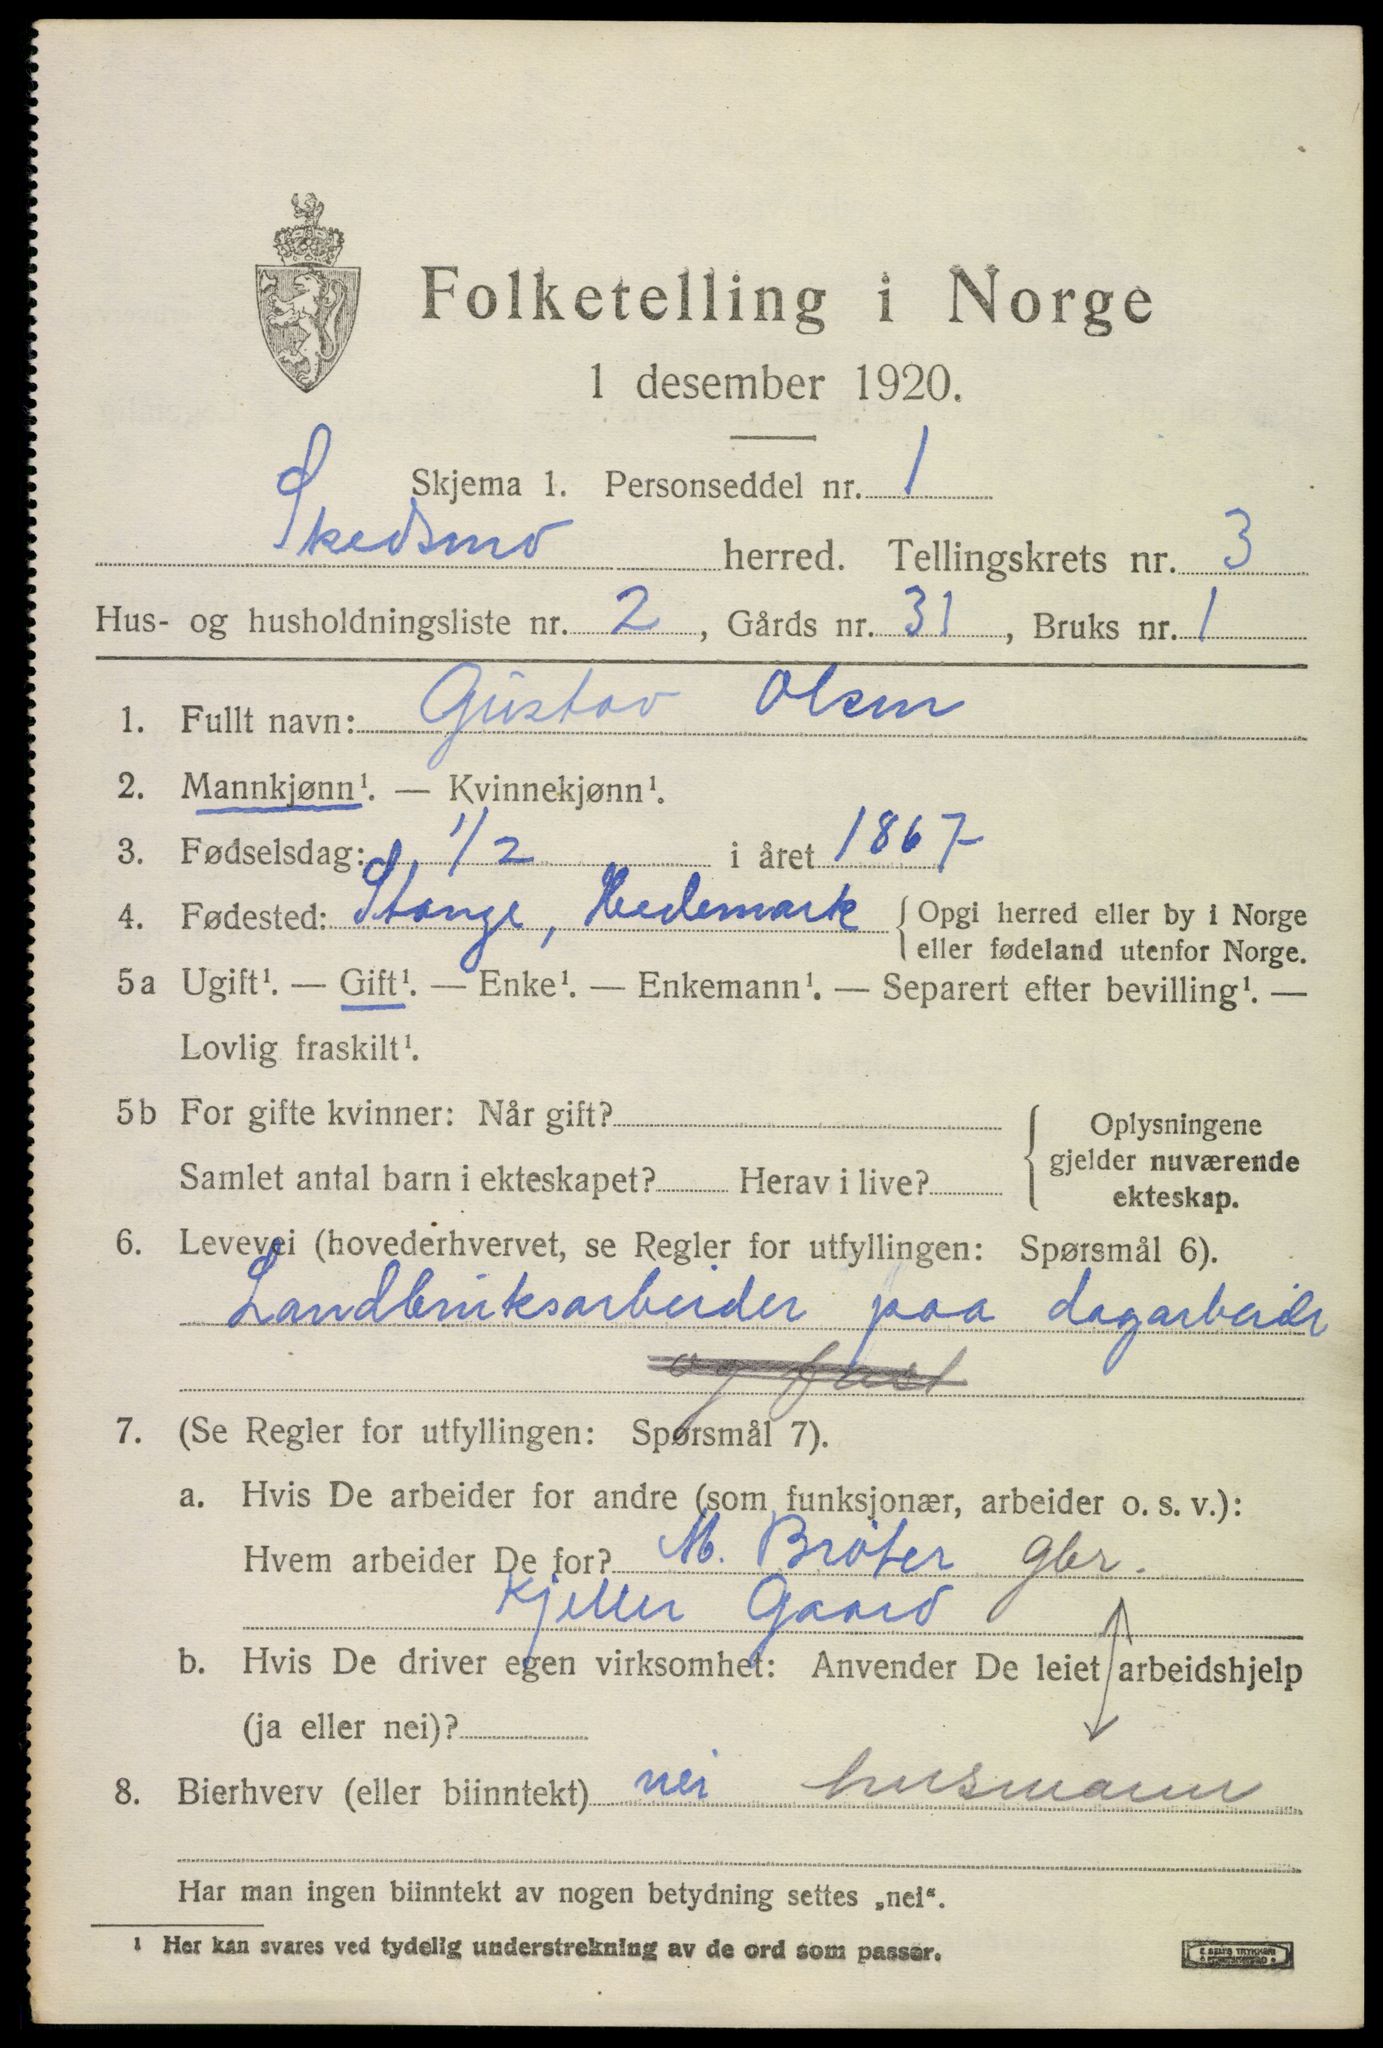 Folketelling i Norge
1 desember 1920.
Skjema 1. Personseddel nr. 1
Skedsmo herred. Tellingskrets nr. 3
Hus- og husholdningsliste nr. 2, Gårds nr. 31, Bruks nr. 1
1. Fullt navn: Gustav Olsen
2. Mannkjønn¹. — Kvinnekjønn¹.
3. Fødselsdag: 1/2 i året 1867
4. Fødested: Stange, Hedemark { Opgi herred eller by i Norge
eller fødeland utenfor Norge.
5a Ugift¹. — Gift¹. — Enke¹. — Enkemann¹. — Separert efter bevilling¹. —
Lovlig fraskilt¹.
5b For gifte kvinner: Når gift?
Samlet antal barn i ekteskapet? Herav i live?
{ Oplysningene
gjelder nuværende
ekteskap.
6. Levevei (hovederhvervet, se Regler for utfyllingen: Spørsmål 6).
Landbruksarbeider paa dagarbeide
og fast
7. (Se Regler for utfyllingen: Spørsmål 7).
a. Hvis De arbeider for andre (som funksjonær, arbeider o. s. v.):
Hvem arbeider De for? M. Bråter gbr.
Kjeller Gaard
b. Hvis De driver egen virksomhet: Anvender De leiet arbeidshjelp
(ja eller nei)?
8. Bierhverv (eller biinntekt) nei husmann
Har man ingen biinntekt av nogen betydning settes „nei“.
¹ Her kan svares ved tydelig understrekning av de ord som passer.